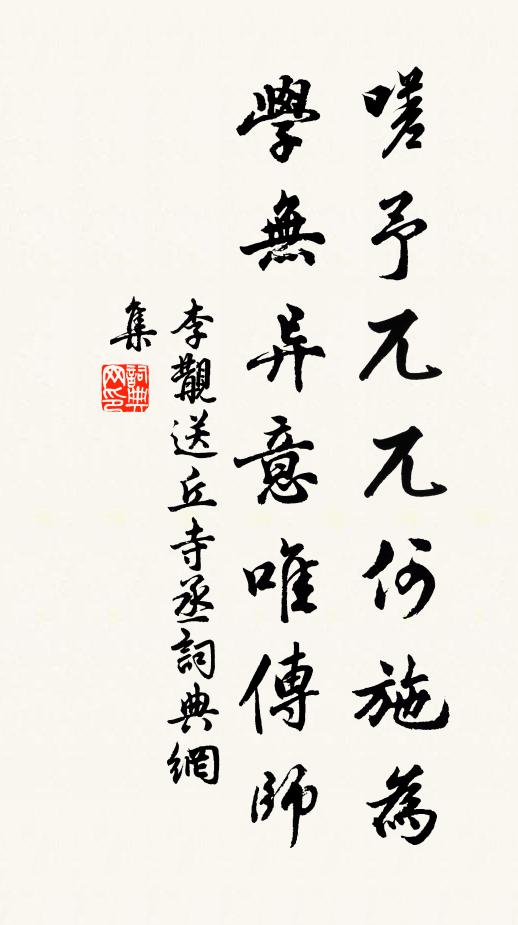 嗟予兀兀何施為
學無异意唯傳師
李覯送丘寺丞詞典網
集
詞典网印